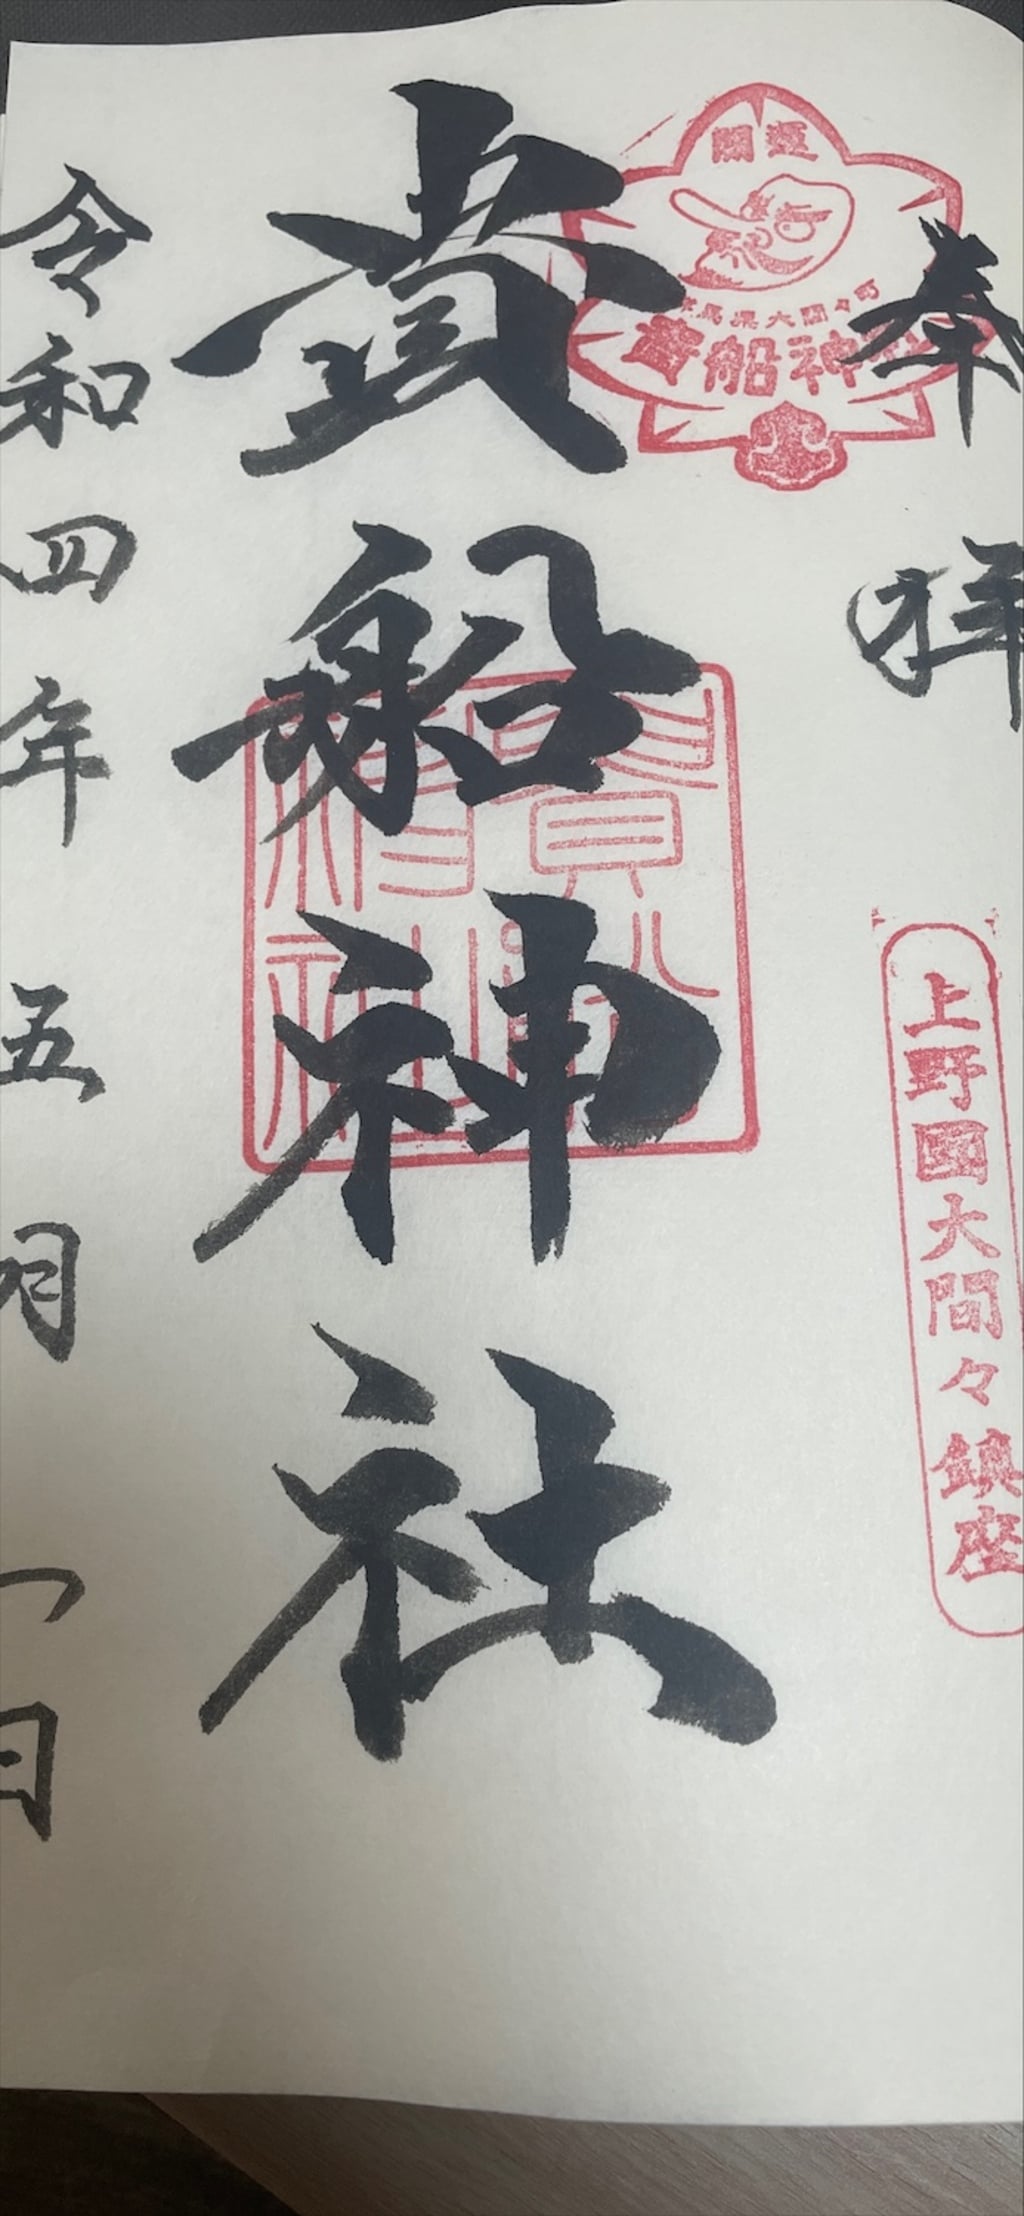 奉拝
開運
群馬県大間々町
貴船神社
上野國大間々鎮座
貴船神社
令和四年五月一日